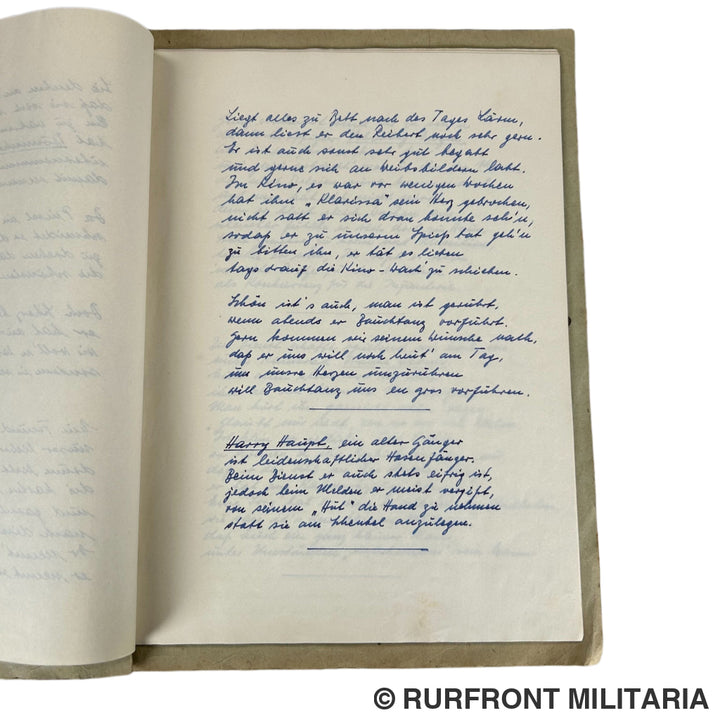 Liegt alles zu Bett nach des Tages Lärm,
dann liest er den Reibert noch sehr gern.
Er ist auch sonst sehr gut begabt
und gerne sich an Weibsbildern labt.
Im Kino, es war vor wenigen Wochen
hat ihm „Klarissa" sein Herz gebrochen,
nicht satt er sich dran konnte seh'n,
sodaß er zu unserem Spieß tat geh'n
zu bitten ihn, er tät es lieben
tags drauf die Kino-Wach' zu schieben.
Schön ist's auch, man ist gerührt,
wenn abends er Bauchtanz vorführt.
Gern kommen wir seinem Wunsche nach,
daß er uns will noch heut' am Tag,
um unsre Herzen umzurühren
will Bauchtanz uns en gros vorführen.
Harry Haupt, ein alter Gänger
ist leidenschaftlicher Hasenfänger.
Beim Dienst er auch stets eifrig ist,
jedoch beim Melden er meist vergißt,
von seinem „Hut" die Hand zu nehmen
statt sie am Schenkel anzulegen.
© RURFRONT MILITARIA